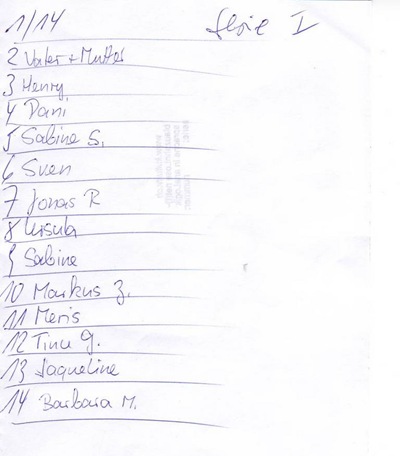 1/14 Serie I
2 Vater + Mutter
3 Henry
4 Dani
5 Sabine S.
6 Sven
7 Jonas R
8 Ursula
9 Sabine
10 Markus Z.
11 Meris
12 Tinu G.
13 Jaqueline
14 Barbara M.